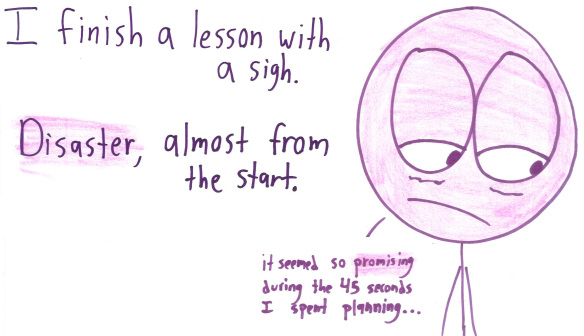 I finish a lesson with
a sigh.
Disaster, almost from
the start.
it seemed so promising
during the 45 seconds
I spent planning...